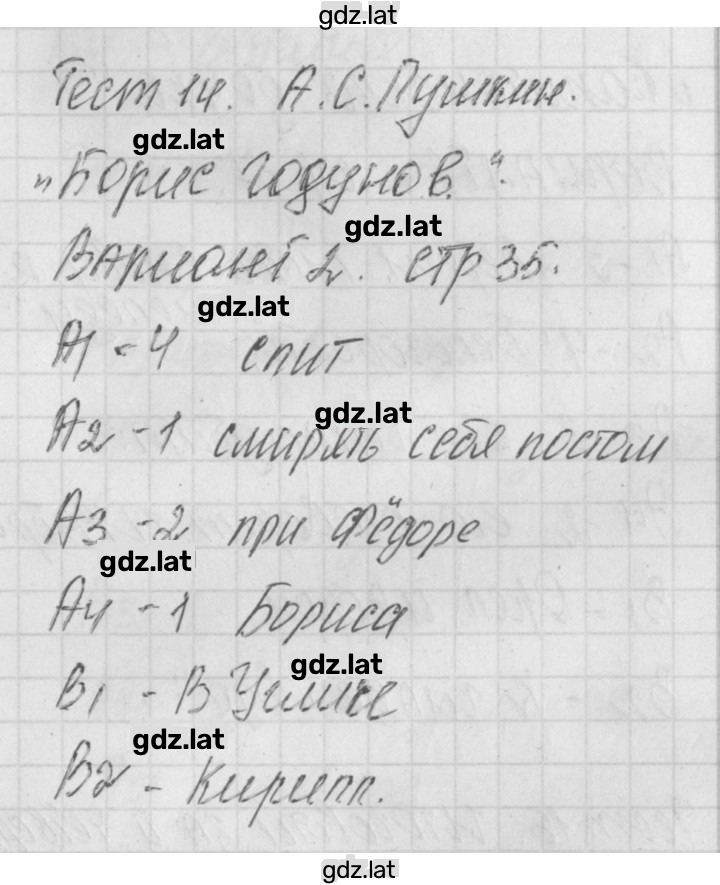 gdz.lat
Тест 14. А.С.Пушкин.
gdz.lat
„Борис Годунов.“
gdz.lat
Вариант 2. стр 35.
gdz.lat
А1 - 4 спит
gdz.lat
А2 - 1 смирять себя постом
А3 - 2 при Фёдоре
gdz.lat
А4 - 1 Бориса
gdz.lat
В1 - В Угличе
gdz.lat
В2 - Кирилл.
gdz.lat